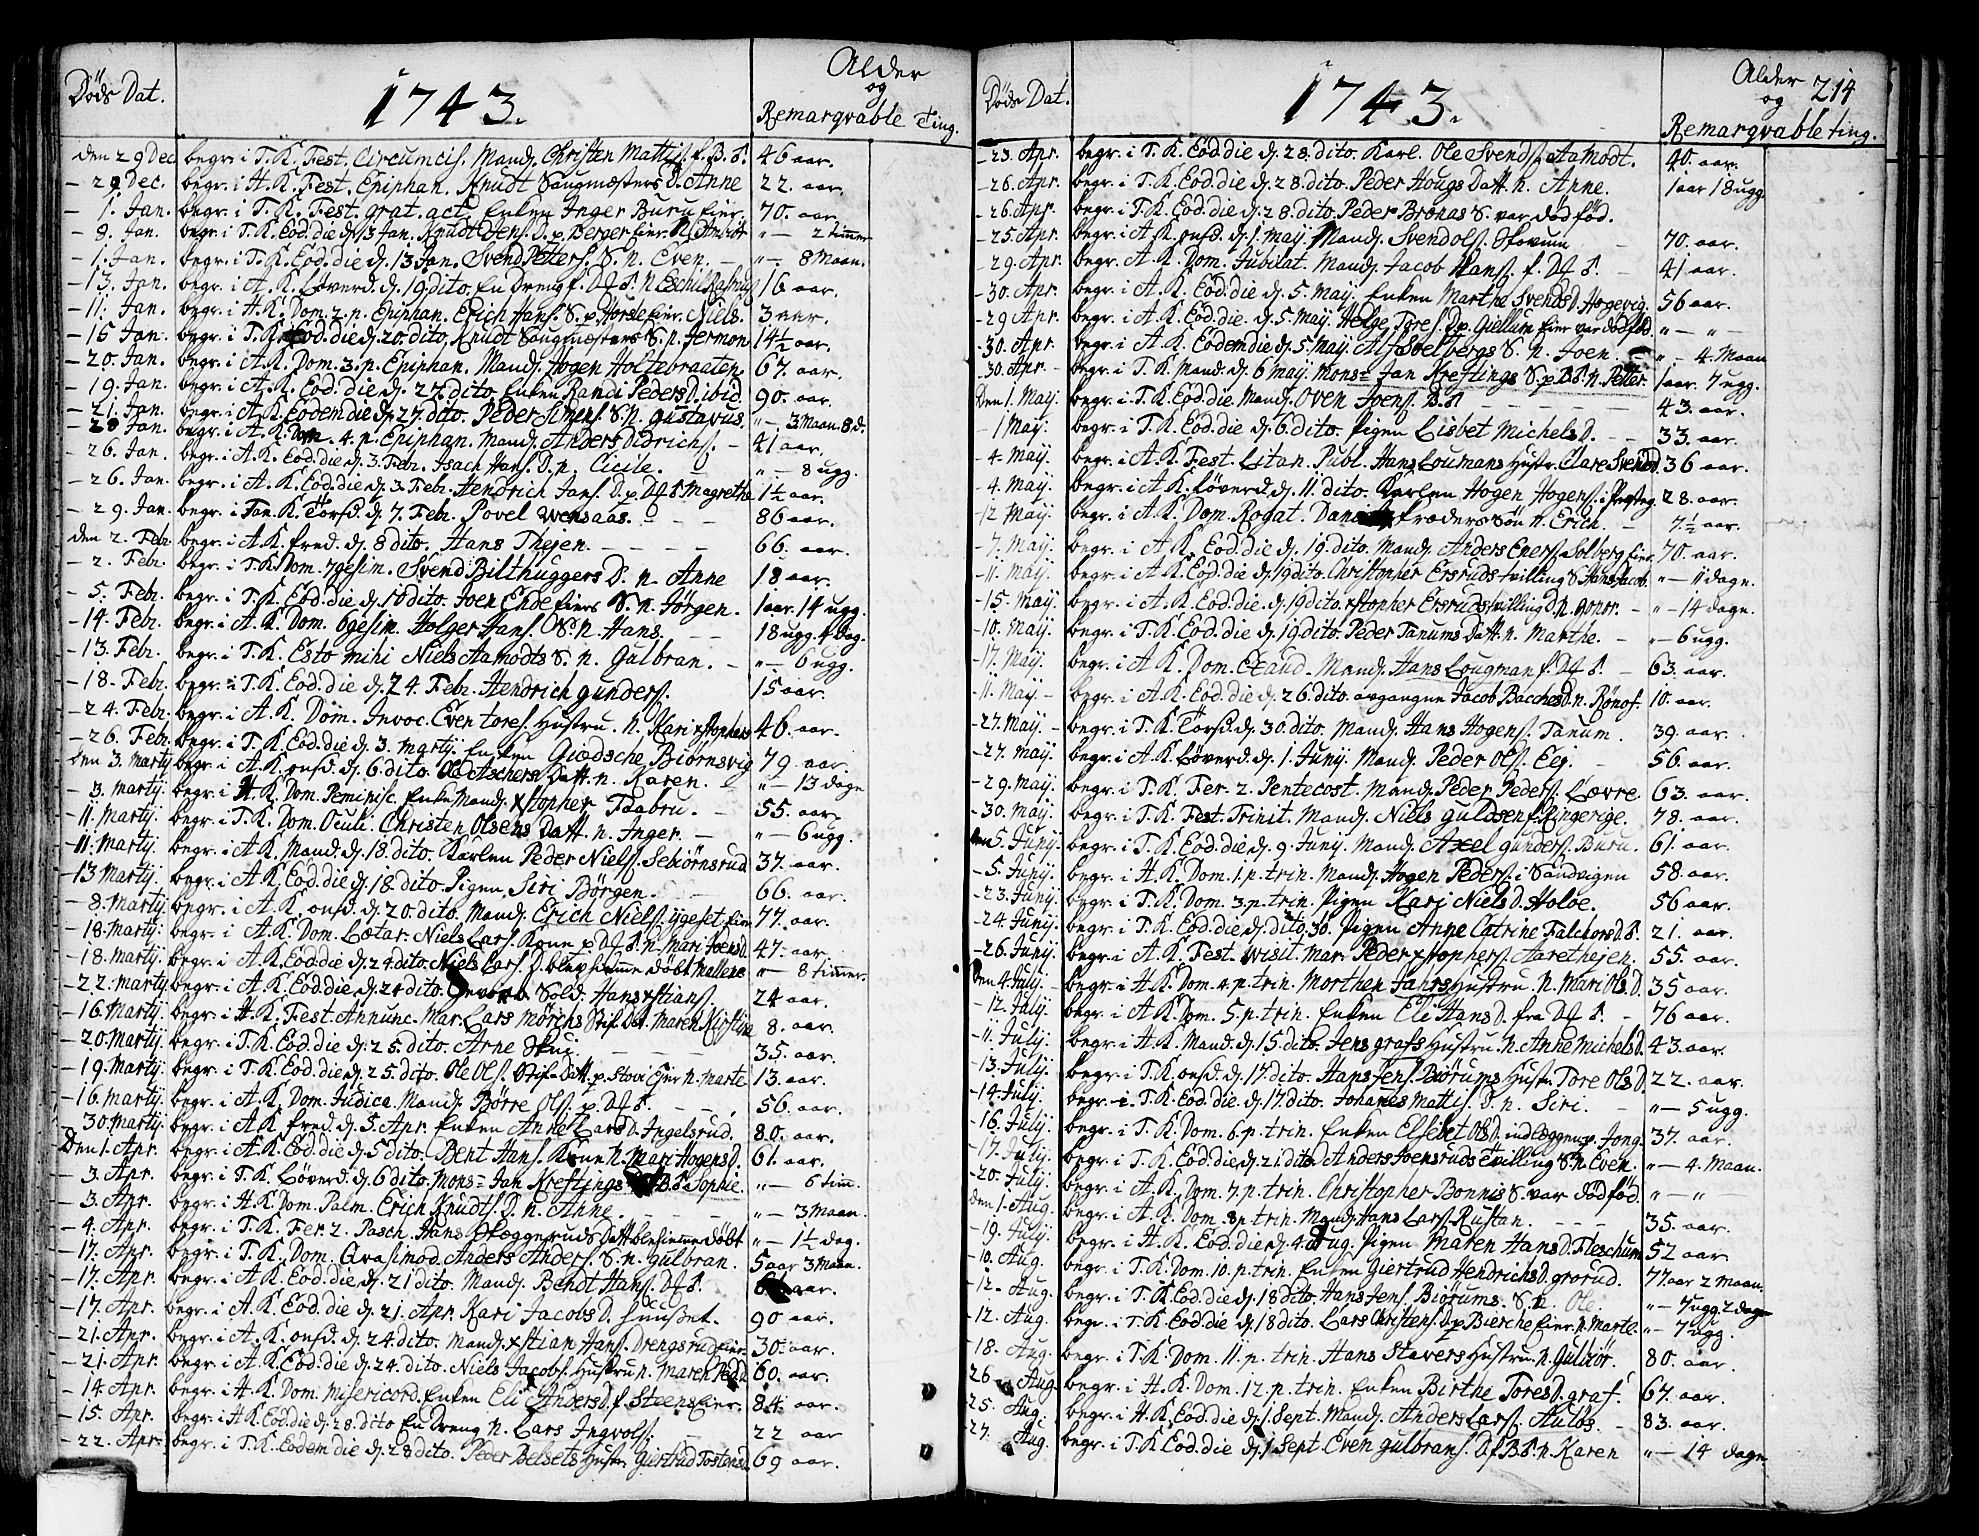 Döds Dat.
1743.
Alder
og
Remarqvable Ting.
den 29 Dec. begr. i T. K. Fest. Circumcis. Mand. Christen Mattis. f. B. S. 46 aar.
- 29 Dec. begr. i H. K. Fest. Epiphan. Knudt Saugmesters D. Anne 22. aar.
- 1. Jan. begr. i T. K. Fest. grat. act. Enken Inger Buru Eier. 70. aar.
- 8. Jan. begr. i T. K. Eod. die d. 13 Jan. Knudt Jens. D. p. Berger Eier. „ - 2 timmer
- 1. Jan. begr. i T. K. Eod. die d. 13 Jan. Svend Petters. S. n. Even. - „ - 8 Maan.
- 13. Jan. begr. i A. K. Löverd. d. 19 dito. En Dreng f. 16 aar.
- 11. Jan. begr. i H. K. Dom. 2. p. Epiphan. Erich Hans. S. p. Horsle Eier. Niels. 3 aar.
- 15 Jan. begr. i T. K. Eod. die d. 20. dito. Knudt Saugmesters S. n. Jermon 14½ aar.
- 20. Jan. begr. i A. K. Dom. 3. p. Epiphan. Mand. Hogen Holtebraaten 67. aar.
- 19. Jan. begr. i A. K. Eod. die d. 27. dito. Enken Randi Peders D. ibid. 90. aar.
- 21. Jan. begr. i A. K. Eodem die d. 27. dito. Peder Simens. S. n. Gustavus. „ - 3 Maan. 8 d.
- 28 Jan. begr. i A. K. Dom. 4. p. Epiphan. Mand. Anders Didrichs. - 41 aar.
- 26. Jan. begr. i A. K. Eod. die d. 3. Febr. Isach Hans. D. n. Cicile. „ - 8 ugg.
- 26. Jan. begr. i A. K. Eod. die d. 3. Febr. Hendrich Jans. D. p. Magrethe 1½ aar.
- 29. Jan. begr. i Tan. K. Torsd. d. 7. Febr. Povel Wensaas. - - - 86 aar.
den 2. Febr. begr. i A. K. fred. d. 8 dito. Hans Thejen. - - - - 66. aar.
- 2. Febr. begr. i T. K. Dom. 7gesim. Svend Bilthuggers D. n. Anne 18 aar.
- 5. Febr. begr. i T. K. Eod. die d. 10 dito. Joen Ende Eiers S. n. Jörgen. 1 aar. 14 ugg.
- 14. Febr. begr. i A. K. Dom. 6gesim. Holger Hans. S. n. Hans. - - 18 ugg. 4 dag.
- 13. Febr. begr. i T. K. Esto mihi Niels Aamodts S. n. Gulbran. - „ - 6 ugg.
- 18. Febr. begr. i T. K. Eod. die d. 24. Febr. Hendrich Gunders. 15 aar.
- 24. Febr. begr. i A. K. Dom. Invoc. Even Tores. Hustru. n. Kari xstophers 46. aar.
- 26. Febr. begr. i T. K. Eod. die d. 3. Marty. Enken Giædsche Biörnsvig 79. aar.
den 3. Marty begr. i A. K. onsd. d. 6. dito. Ole Aschers Datt. n. Karen. - „ - 13 dage
- 3. Marty. begr. i H. K. Dom. Reminisc. Enke Mand. xstopher Taabru. - 55. aar.
- 11. Marty. begr. i T. K. Dom. Oculi. Christen Olsens Datt. n. Inger. - „ - 6 ugg.
- 11. Marty. begr. i A. K. Mand. d. 18. dito. Karlen Peder Niels. Sebiörnsrud 37. aar.
- 13 Marty. begr. i A. K. Eod. die d. 18. dito. Pigen Siri Börgen. - - 66. aar.
- 8. Marty. begr. i A. K. onsd. d. 20. dito. Mand. Erich Niels. ijgeset Eier 77. aar.
- 18. Marty. begr. i A. K. Dom. Lætar. Niels Lars. Kone p. n. Mari Joens D. 47. aar
- 18. Marty. begr. i A. K. Eod. die d. 24 dito. Niels Lars. D. blev hiemme döbt Mallene „ - 8 timmer.
- 22. Marty. begr. i A. K. Eod. die d. 24 dito. Sold. Hans xstians. 24 aar.
- 16. Marty. begr. i H. K. Fest. Annunc. Mar. Lars Mörichs Stif Dat. Maren Kirstin 8. aar.
- 20. Marty. begr. i T. K. Eod. die d. 25. dito. Arne Skui - - - 35. aar.
- 19. Marty. begr. i T. K. Eod. die d. 25. dito. Ole Ols. Stif Datt. p. Stovi Eier n. Marte 13. aar.
- 16. Marty. begr. i A. K. Dom. Judica. Mand. Börre Ols. p. 56. aar.
- 30. Marty. begr. i A. K. fred. d. 5. Apr. Enken Anne Lars D. Ingelsrud. 80. aar.
Den 1. Apr. begr. i A. K. Eod. die d. 5 dito. Bent Hans. Kone n. Mari Hogens D. 61. aar.
- 3. Apr. begr. i T. K. Löverd. d. 6 dito. Mons= Jan Kreftings B. S. Sophie. „ - 6 tim.
- 3. Apr. begr. i H. K. Dom. Palm. Erich Knudts. D. n. Anne. - - - „ - 3 Maan.
- 4. Apr. begr. i T. K. Fer. 2. Pasch. Hans Skoggeruds Datt. blev hiemme döbt „ - 1½ dag.
- 17. Apr. begr. i T. K. Dom. Qvasimod. Anders Anders. S. n. Gulbran. 5 aar 3 Maan.
- 17. Apr. begr. i A. K. Eod. die d. 21 dito. Mand. Bendt Hans. aar.
- 17. Apr. begr. i A. K. Eod. die d. 21. Apr. Kari Jacobs D. 90 aar.
- 21. Apr. begr. i A. K. onsd. d. 24. dito. Mand. xstian Hans. Drengsrud Eier. 30. aar.
- 21. Apr. begr. i A. K. Eod. die d. 24. dito. Niels Jacobs. Hustru n. Maren Ped. D. 60. aar.
- 14 Apr. begr. i H. K. Dom. Misericord. Enken Eli Anders D. f. Steens Eier. 84. aar.
- 15. Apr. begr. i H. K. Eod. die d. 28. dito En Dreng n. Lars Ingvols. - 22 aar
- 22. Apr. begr. i T. K. Eodem die d. 28 dito. Peder Belsets Hustr. Giertrud Tostens D. 69 aar.
Döds Dat.
1743.
Alder
og 214
Remarqvable ting.
- 23. Apr. begr. i T. K. Eod. die d. 28. dito. Karl. Ole Svends. Aamodt. 40. aar.
- 26. Apr. begr. i T. K. Eod. die d. 28. dito. Peder Hougs Datt. n. Anne. 1 aar 18 ugg.
- 26. Apr. begr. i T. K. Eod. die d. 28. dito. Peder Bronas S. var död föd.
- 25. Apr. begr. i A. K. onsd. d. 1. May. Mand. Svend Ols. Skovum - 70. aar.
- 29. Apr. begr. A. K. Dom. Jubilat. Mand. Jacob Hans. f. - 41 aar.
- 30. Apr. begr. i A. K. Eod. die d. 5. May. Enken Marthe Svends D. Hogevig. 56 aar.
- 29 Apr. begr. i A. K. Eod. die. d. 5. May. Helge Tores. D. p. Giellum Eier var död föd „ - „ -
- 30. Apr. begr. i A. K. Eodem die d. 5 May. Alf Solbergs S. n. Joen. - „ - 4. Maan
- 30. Apr. begr. i T. K. Mand. d. 6 May. Mons= Jan Kreftings S. p. B. S. n. Petter. 1 aar. 7 ugg.
Den 1. May. begr. i T. K. Eod. die Mand. Oven Joens. B. S. - - - - 43. aar.
- 1 May. begr. i T. K. Eod. die d. 6. dito. Pigen Lisbet Michels D. - - 33. aar.
- 4. May. begr. i A. K. Fest. Litan. Publ. Hans Loumans Hustr. Clare Svends D. 36 aar.
- 4. May. begr. i A. K. Löverd. d. 11. dito. Karlen Hogen Hogens. i 28. aar.
- 12 May. begr. i A. K. Dom. Rogat. Fræders Sön n. Erich. - 7½ aar.
- 7. May. begr. i A. K. Eod. die d. 19. dito. Mand. Anders Eners. Solberg Eier. 70. aar.
- 11. May. begr. i A. K. Eod. die d. 19 dito. Christopher Ersruds tvilling S. Hans Jacob. „ - 11 dage.
- 15. May. begr. i A. K. Eod. die. d. 19 dito. xstopher Ersruds tvilling D. n. Gonor. - „ - 14 dage.
- 10. May. begr. i T. K. Eod. die d. 19. dito. Peder Tanums Datt. n. Marthe. - „ - 6 ugg.
- 17. May. begr. i A. K. Dom. Exaud. Mand. Hans Lougman f. - 63. aar.
- 11. May - begr. i A. K. Eod. die d. 26. dito. avgangne Jacob Bacches D. n. Rönof. 10. aar.
- 27. May. - begr. i T. K. Torsd. d. 30. dito. Mand. Hans Hogens. Tanum. - 39. aar.
- 27. May. begr. i A. K. Löverd. d. 1. Juny. Mand. Peder Ols. Eej. - 56. aar.
- 29. May. begr. i T. K. Fer. 2. Pentecost. Mand. Peder Peders. Lövre. 63. aar.
- 30. May. begr. i T. K. Fest. Trinit. Mand. Niels Guldsen f. Ringerige. 78. aar.
den 5. Juny. begr. i T. K. Eod. die d. 9 Juny. Mand. Axel Gunders. Buru. 61. aar.
- 5. Juny. begr. i H. K. Dom. 1. p. trin. Mand. Hogen Peders. i Sandvigen 58. aar.
- 23. Juny. begr. i T. K. Dom. 3. p. trin. Pigen Kari Niels D. Holöe. 56 aar.
- 24. Juny. begr. i T. K. Eod. die d. dito 30. Pigen Anne Catrine Falchors D. 21. aar.
- 26. Juny. begr. i A. K. Fest. Visit. Mar. Peder xstophers. Aarethejen. 55. aar.
Den 4. July. begr. i H. K. Dom. 4. p. trin. Morthen Jahrs Hustru. n. Mari Ols D. 35 aar.
- 12. July. begr. i A. K. Dom. 5. p. trin. Enken Eli Hans D. fra - 76 aar.
- 11. July. begr. i H. K. Mand. d. 15. dito. Jens grafs Hustru. n. Anne Michels D. 43. aar.
- 13. July. begr. i T. K. onsd. d. 17. dito. Hans Jens. Biörums Hustr. Tore Ols D. 22. aar.
- 14. July. begr. i T. K. Eod. die d. 17. dito. Johanes Mattis. D. n. Siri. - „ - 5 ugg.
- 16. July. begr. i T. K. Dom. 6. p. trin. Enken Elsebet Ols D. indloggen p. Jong. 37. aar.
- 17. July. begr. i T. K. Eod. die d. 21 dito. Anders Joensruds Tvilling S. n. Even. „ - 4. Maan.
- 20. July. begr. i A. K. Dom. 7. p. trin. Christopher Bonnis S. var död föd. „ - „ -
den 1. Aug. begr. i A. K. Dom. 8. p. trin. Mand. Hans Lars. Rustan. - - - 35. aar.
- 19. July. begr. i H. K. Eod. die d. 4. Aug. Pigen Maren Hans D. Fleschum 52 aar.
- 10. Aug. begr. i T. K. Dom. 10. p. trin. Enken Giertrud Hendrichs D. grorud. 77 aar 2 Maan.
- 12. Aug. begr. i T. K. Eod. die d. 18. dito. Hans Jens. Biörums. S. n. Ole. „ - 7 ugg. 2 dage
- 12. Aug. begr. i T. K. Eod. die d. 18 dito. Lars Christens. D. p. Bierche Eier. n. Marte. „ - 7 ugg.
- 18. Aug. begr. i T. K. Dom. 11. p. trin. Hans Stavers Hustru. n. Gulbiör. 80. aar.
26 - Aug. begr. i H. K. Dom. 12. p. trin. Enken Birthe Tores D. graf. 67. aar.
25. Aug. begr. i H. K. Eod. die d. 1. Sept. Mand. Anders Lars. - 83. aar.
27. Aug. begr. i T. K. Eod. die d. 1 Sept. Even Gulbrans. D. f. B. S. n. Karen „ - 14 dage